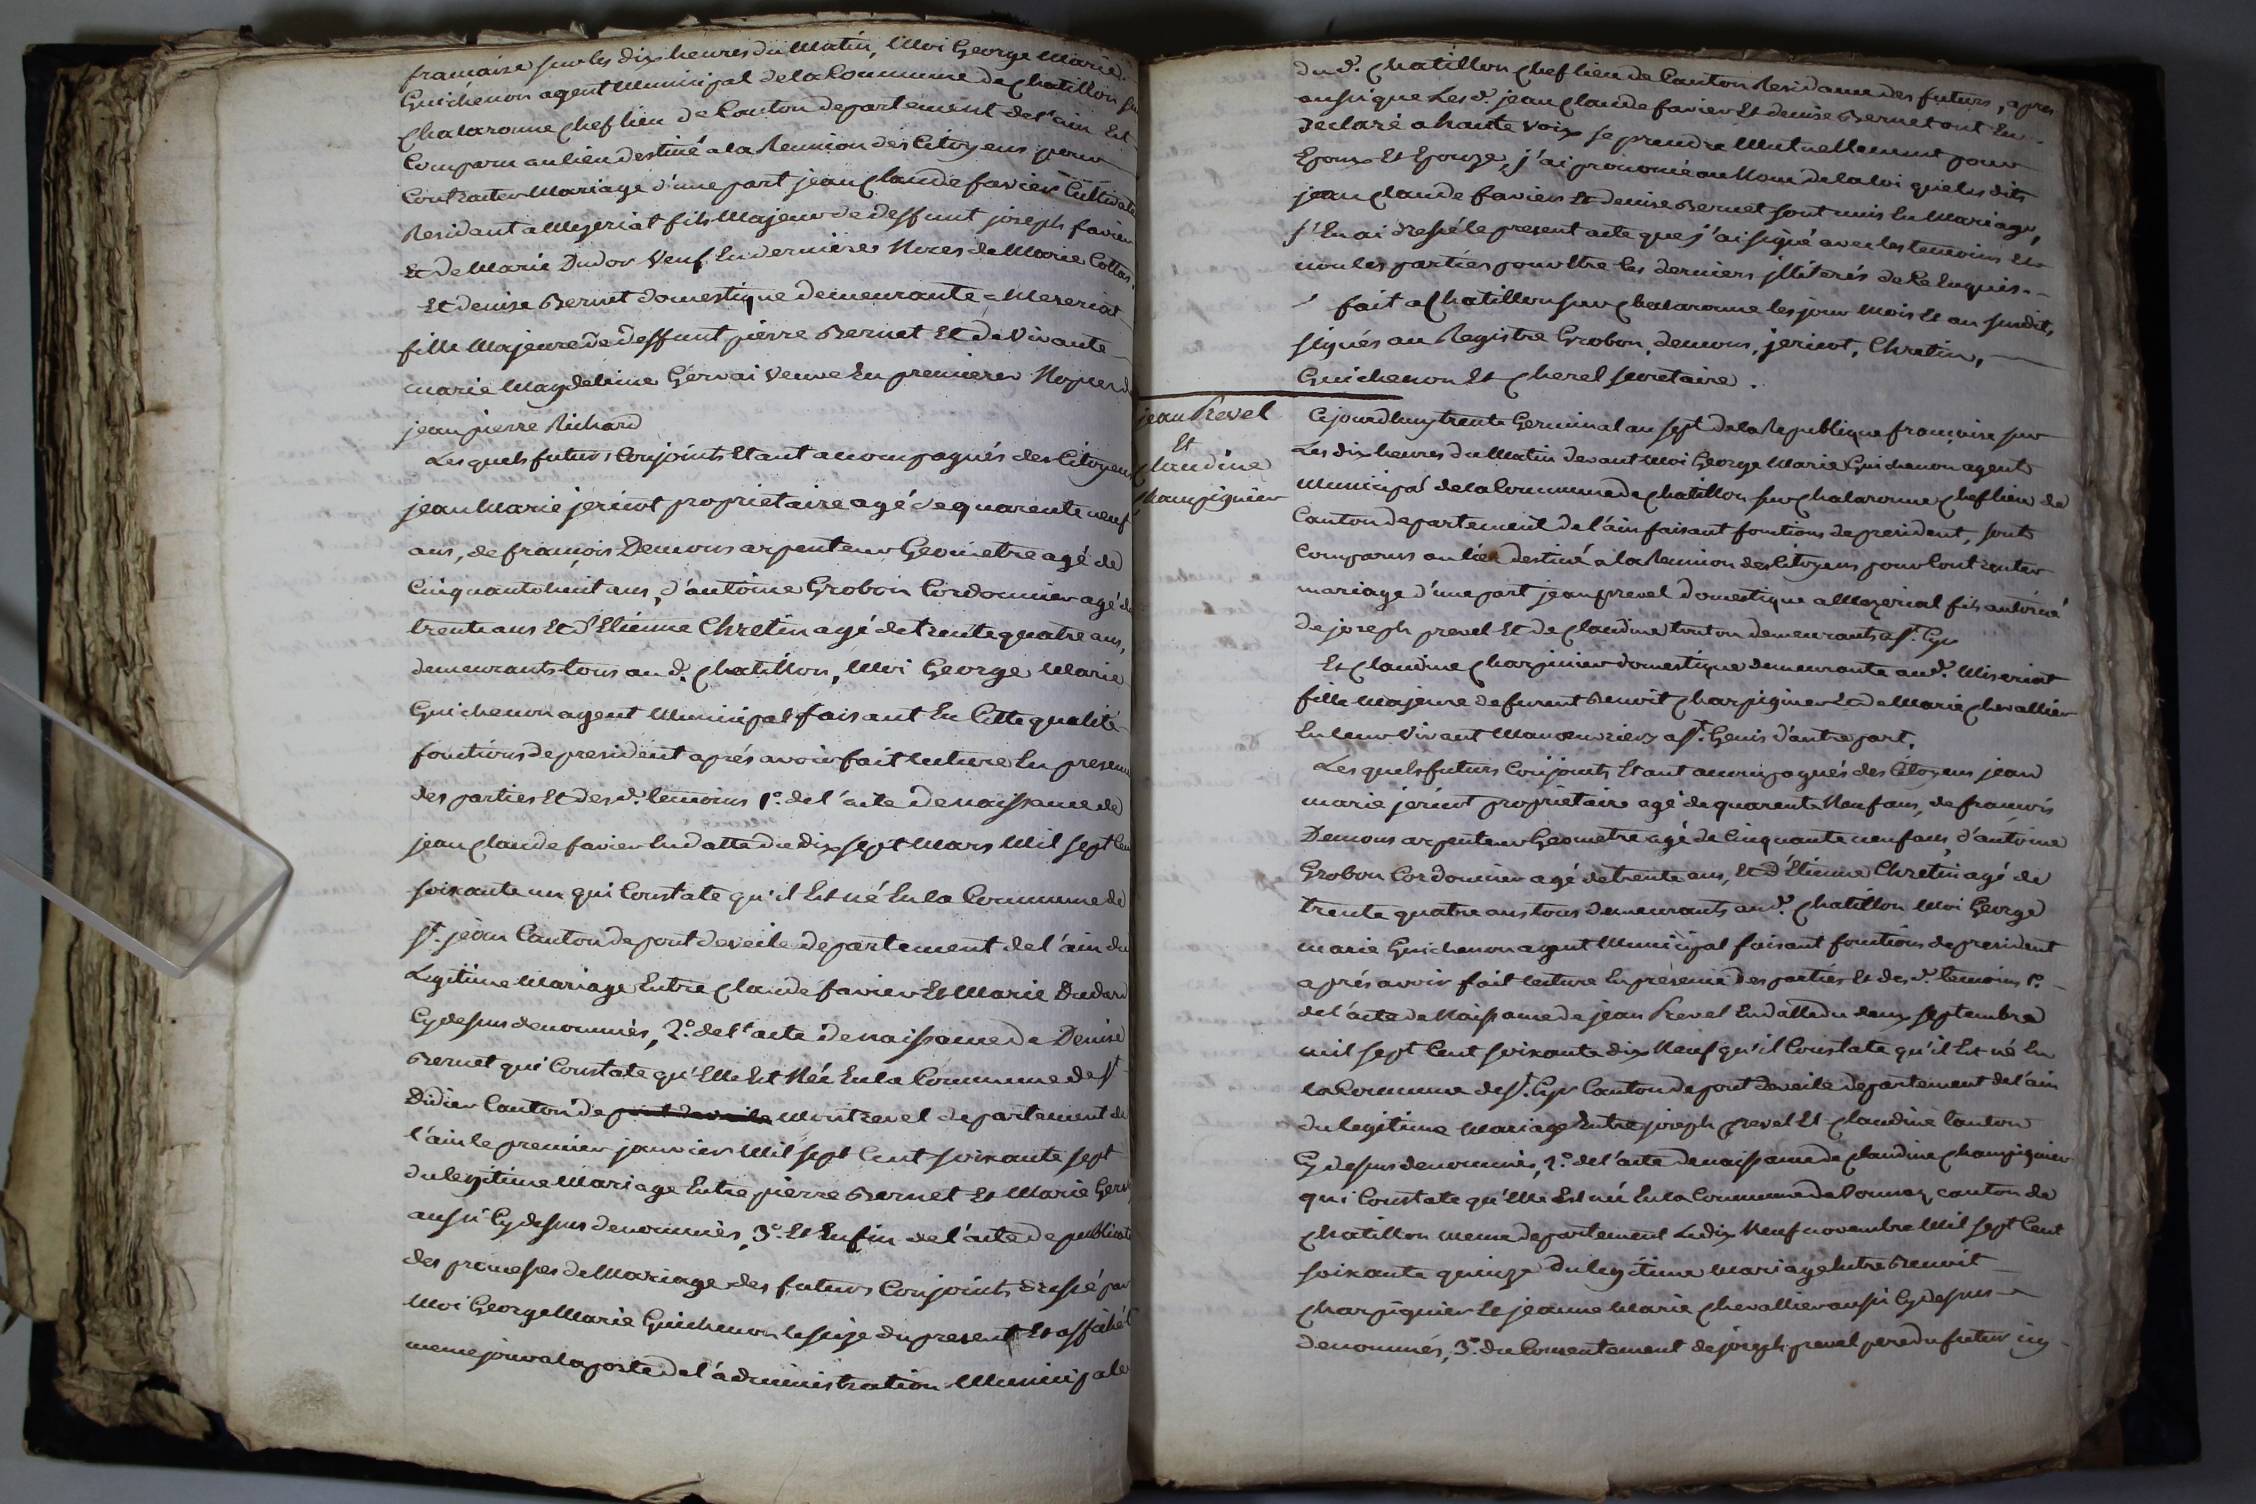 francaise sur les dix heures du Matin, Moi George Marie
Guichenon agent Municipal dela Commune de chatillon sur
chalaronne chef lieu de Canton departement del'ain Est
Comparu au lieu destiné a la Reunion des Citoyens pour
Contracter Mariage d'une part jean claude favier Cultivate
Residant a Mezeriat fils Majeur de deffunt joseph favier
Et de Marie Dudor Veuf En derniere Noces de Marie Cottar
Et denise Bernet domestique demeurante a Mezeriat
fille Majeure de deffunt pierre Bernet Et de Vivante
marie Magdeleine Gervai Veuve En premieres Noces de
jean pierre Richard
Les quels futurs Conjoints Etant acompagnés des Citoyens
jean Marie jericot proprietaire agé de quarente neuf
ans, de françois Demons arpenteur Geometre agé de
Cinquante huit ans, d'antoine Grobon Cordonnier agé de
trente ans Et d'Etienne Chretin agé de trente quatre ans,
demeurants tous au d. chatillon, Moi George Marie
Guichenon agent Municipal faisant En Cette qualité
fonctions de president aprés avoir fait lecture En presence
des parties Et des d. temoins 1º. de l'acte de naissance de
jean claude favier En datte du dix sept Mars Mil sept Cent
soixante un qui Constate qu'il Est né En la Commune de
St. jean Canton de pont de veile departement de l'ain du
Legitime Mariage Entre claude favier Et Marie Dudard
Cy dessus denommés, 2º. de l'acte de naissance de Denise
Bernet qui Constate qu'Elle Est Née En la Commune de St
Didier Canton de pont de veile Montrevel departement de
l'ain le premier janvier Mil sept Cent soixante sept
du legitime Mariage Entre pierre Bernet Et Marie Gerv
aussi Cy dessus denommés, 3º. Et Enfin de l'acte de publicati
des promesses de Mariage des futurs Conjoints dressé par
Moi George Marie Guichenon le seize du present Et affiché l
meme jour a la porte de l'administration Municipale
du d. chatillon chef lieu de Canton Residance des futurs, apres
aussi que Les d. jean claude favier Et denise Bernet ont Eu
Declaré a haute Voix se prendre Mutuellement pour
Epoux Et Epouze, j'ai prononcé au Nom de la loi que les dits
jean claude favier Et denise Bernet sont unis En Mariage,
j'En ai dressé le present acte que j'ai signé avec les temoins Et
non les parties pour Etre les derniers illiterés de Ce Enquis.
fait a Chatillon sur chalaronne les jour Mois Et an susdits
signés au Registre Grobon, demons, jericot, Chretin,
Guichenon Et cherel secretaire.
jean Prevel
Et
claudine
champignier
Cejourdhuy trente Germinal an sept dela Republique françoise sur
Les dix heures du Matin devant Moi George Marie Guichenon agent
Municipal dela Commune de chatillon sur chalaronne chef lieu de
Canton departement de l'ain faisant fonctions de president, sont
Comparus au lieu destiné a la Reunion des Citoyens pour Contracter
mariage d'une part jean prevel domestique a Mezeriat fils
de joseph prevel Et de claudine tonton demeurants a St. Cyr
Et claudine charpinier domestique demeurante au d. Miseriat
fille Majeure de furent Benoit charpignier Et de Marie chevallier
En leur Vivant Manoeuvriers a St. Genis d'autre part.
Les quels futurs Conjoints Etant acompagnés des Citoyens jean
marie jericot proprietaire agé de quarente Neuf ans, de francois
Demons arpenteur Geometre agé de Cinquante neuf ans, d'antoine
Grobon Cordonnier agé de trente ans, Et d'Etienne Chretin agé de
trente quatre ans tous demeurants au d. chatillon Moi George
marie Guichenon agent Municipal faisant fonctions de president
aprés avoir fait lecture En présence des parties Et des d. temoins 1º.
de l'acte de Naissance de jean Prevel En datte du deux septembre
mil sept Cent soixante dix Neuf qu'il Constate qu'il Est né En
la Commune de St. Cyr Canton de pont de veile departement de l'ain
du legitime Mariage Entre joseph prevel Et claudine tonton
Cy dessus denommés, 2º. de l'acte de naissance de claudine champignier
qui Constate qu'Elle Est née En la Commune de Vonnaz canton de
chatillon meme departement Le dix Neuf novembre Mil sept Cent
soixante quinze du legitime Mariage Entre Benoit
charpignier Et jeanne Marie chevallier aussi Cy dessus
denommés, 3º. du Consentement de joseph prevel pere du futur